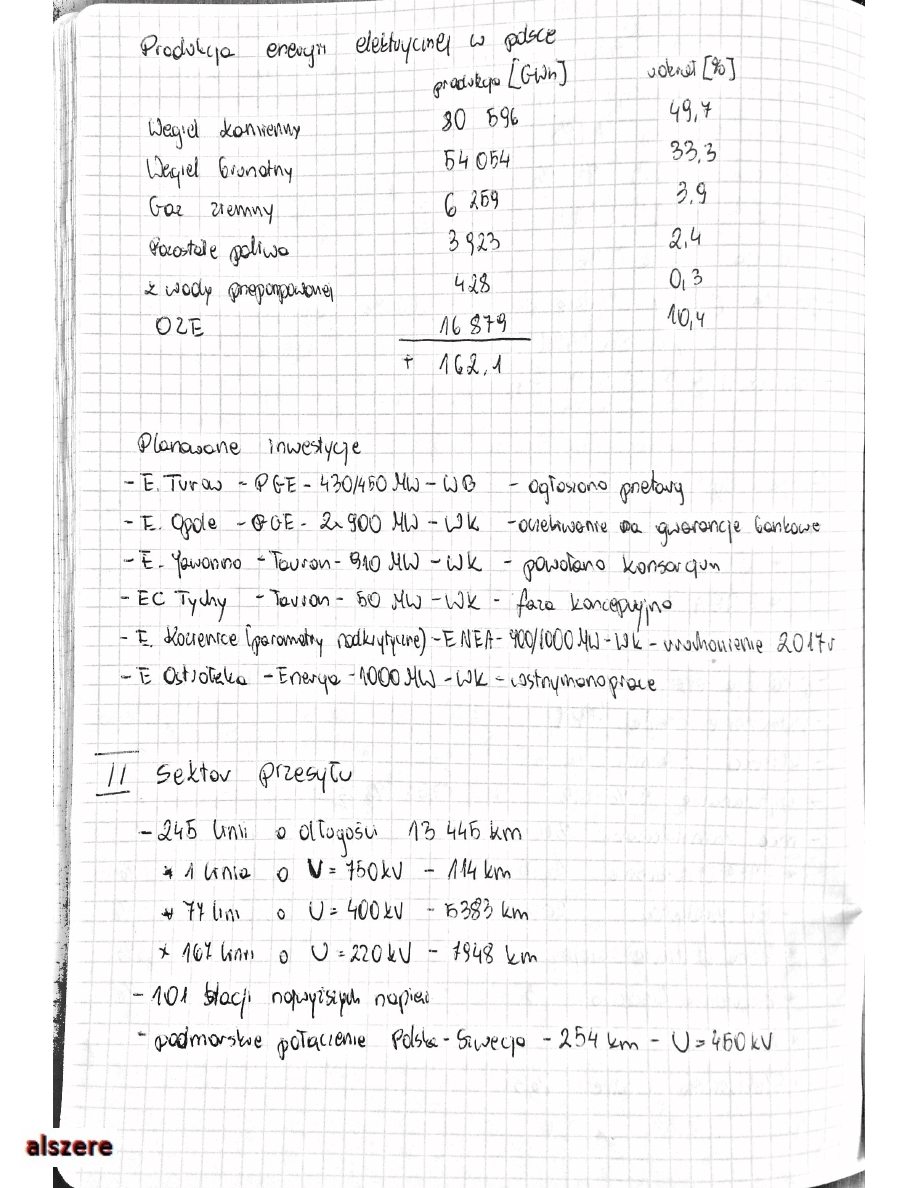 Produkcja energii elektrycznej w polsce
produkcja [GWh] udział [%]
Węgiel kamienny 80 596 49,7
Węgiel brunatny 54 054 33,3
Gaz ziemny 6 259 3,9
Pozostałe paliwa 3 923 2,4
z wody przepompowanej 428 0,3
OZE 16 879 10,4
+ 162,1
Planowane inwestycje
- E. Turów - PGE - 430/450 MW - WB - ogłoszono przetarg
- E. Opole - PGE - 2x900 MW - WK - oczekiwanie na gwarancje bankowe
- E. Jaworzno - Tauron - 910 MW - WK - powołano konsorcjum
- EC Tychy - Tauron - 50 MW - WK - faza koncepcyjna
- E. Kozienice (parametry nadkrytyczne) - ENEA - 900/1000 MW - WK - uruchomienie 2017r
- E Ostrołęka - Energa - 1000 MW - WK - wstrzymano prace
II Sektor przesyłu
- 245 linii o długości 13 445 km
* 1 linia o U = 750 kV - 114 km
* 77 lini o U = 400 kV - 5383 km
* 167 linii o U = 220 kV - 7948 km
- 101 stacji najwyższych napięć
- podmorskie połączenie Polska - Szwecja - 254 km - U = 450 kV
alszere